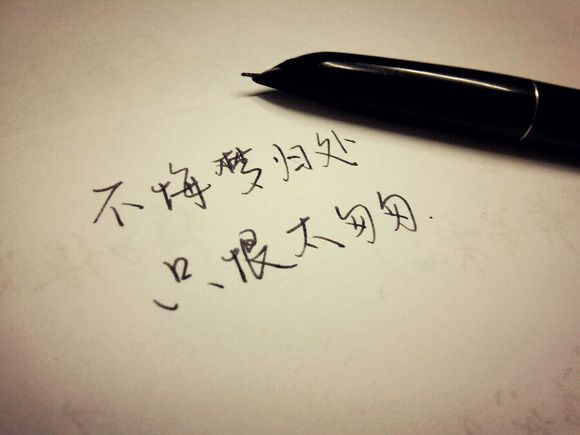 不悔梦归处
只恨太匆匆.